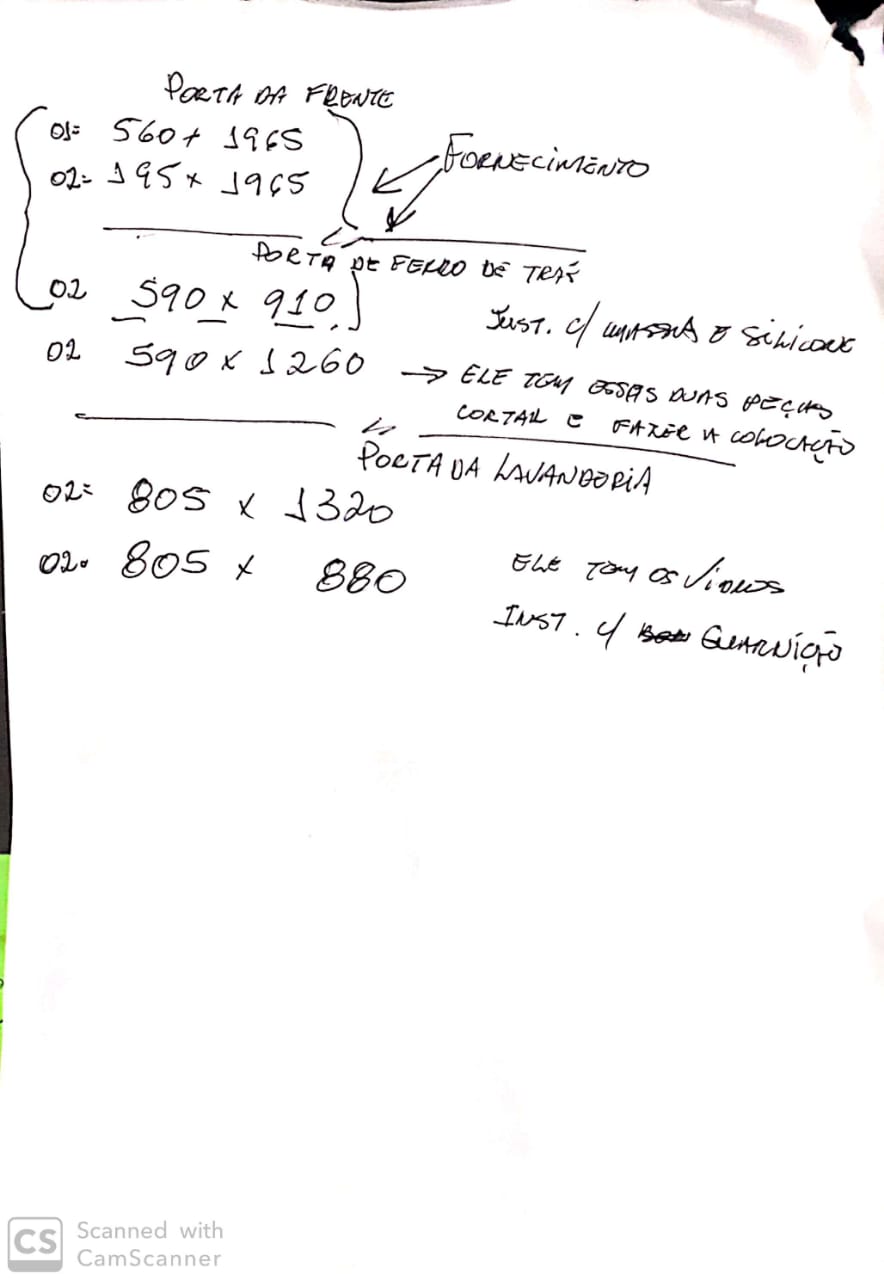 PORTA DA FRENTE
01= 560 x 1965
02= 195 x 1965
FORNECIMENTO
PORTA DE FERRO DE TRAS
02 590 x 910
INST. C/ MASSA E SILICONE
02 590 x 1260
→ ELE TEM ESSAS DUAS PEÇAS
CORTAR E FAZER A COLOCAÇÃO
PORTA DA LAVANDERIA
02= 805 x 1320
02= 805 x 880
ELE TEM OS VIDROS
INST. C/ GUARNIÇÃO
CS Scanned with
CamScanner